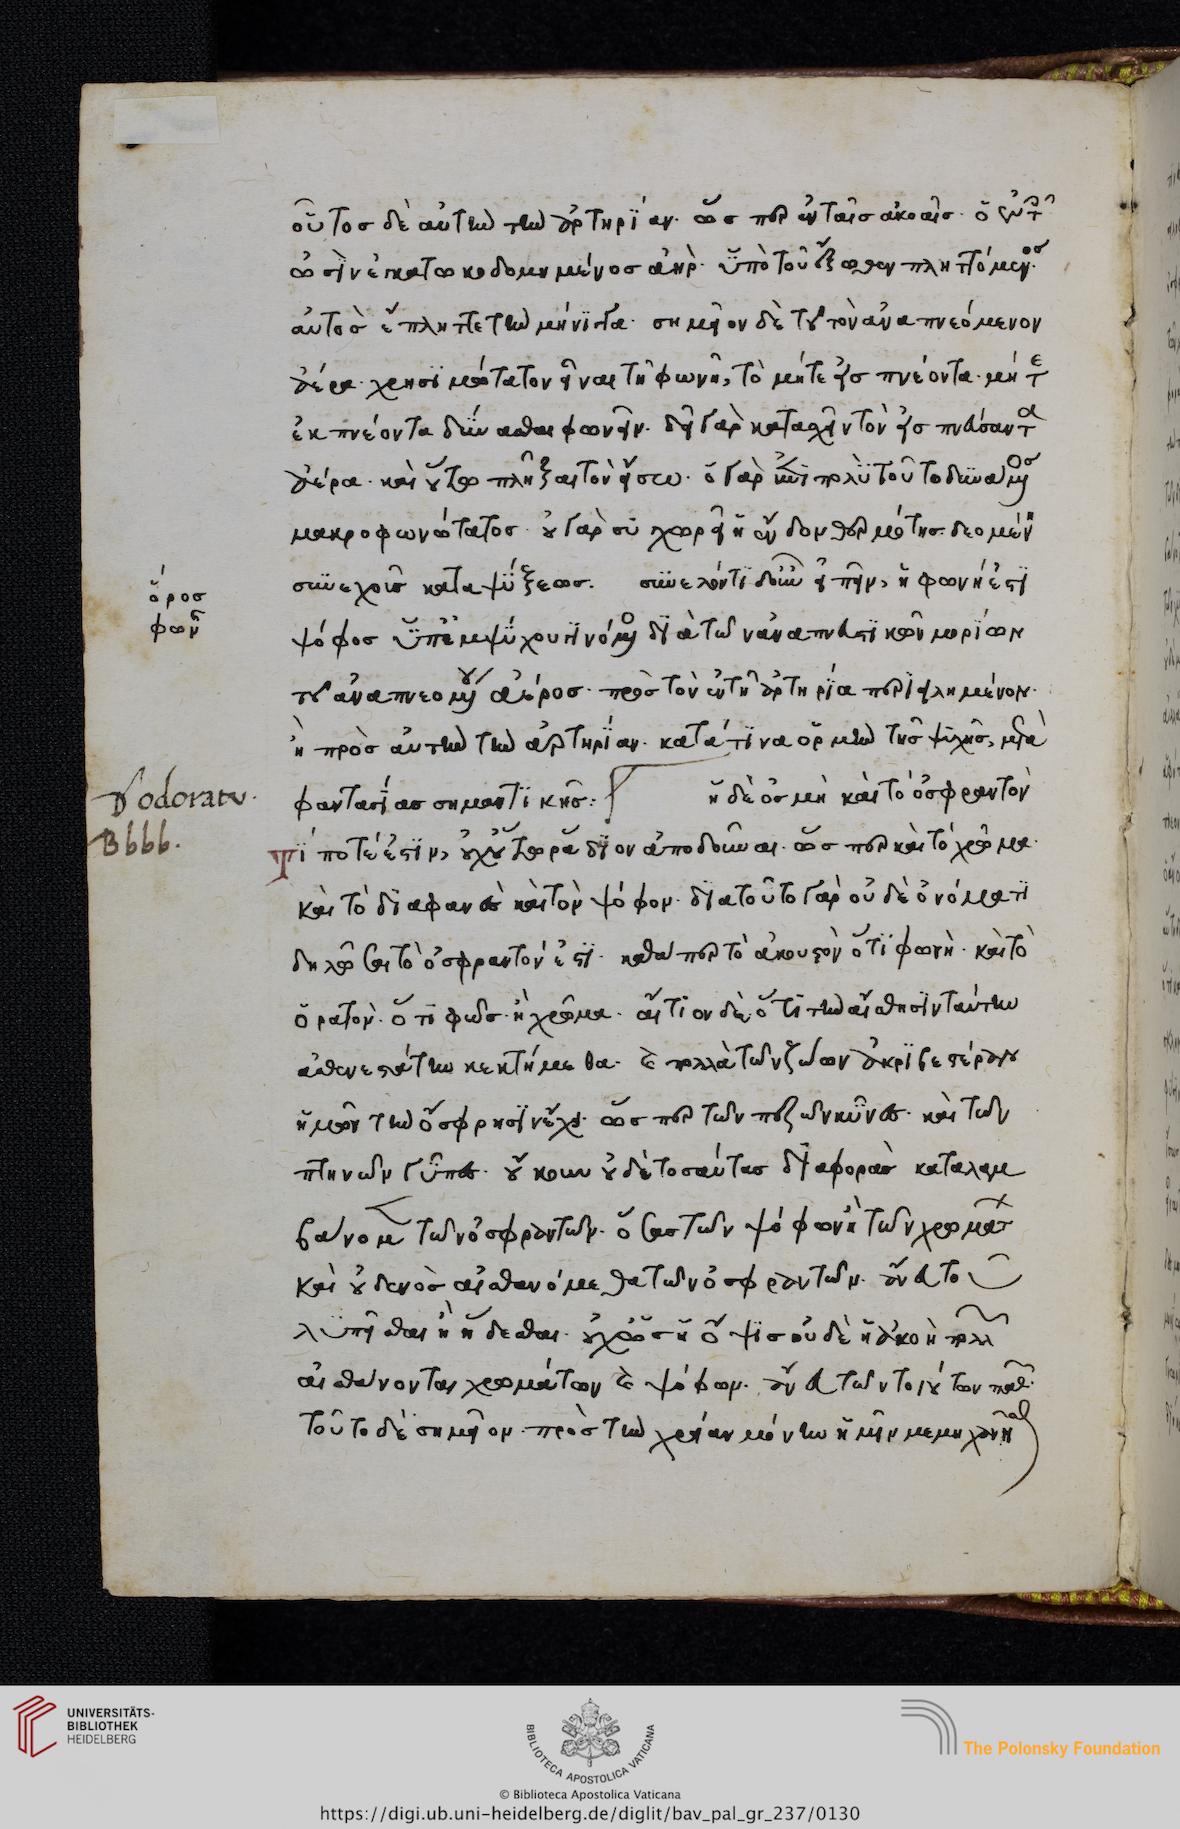 οὗτος δὲ αὐτὴν τὴν ἀρτηρίαν. ὥσπερ ἐν ταῖς ἀκοαῖς. ὁ ἐν τοῖς
ὠσὶν ἐγκατῳκοδομημένος ἀήρ. ὑπὸ τοῦ ἔξωθεν πληττόμενος.
αὐτὸς ἔπληττε τὴν μήνιγγα. σημεῖον δὲ τοῦ τὸν ἀναπνεόμενον
ἀέρα. χρησιμώτατον εἶναι τῇ φωνῇ, τὸ μήτε εἰσπνέοντα. μήτε
ἐκπνέοντα δύνασθαι φωνεῖν. δεῖ γὰρ κατασχεῖν τὸν εἰσπνεύσαντα
ἀέρα. καὶ οὕτω πλῆξαι τὸν εἴσω. ὁ γὰρ ἐπὶ πολὺ τοῦτο δυνάμενος
μακροφωνότατος. οὐ γὰρ συγχωρεῖ ἡ ἔνδον θερμότης. δεομένη
συνεχοῦς καταψύξεως. συνελόντι δ' οὖν εἰπεῖν, ἡ φωνή ἐστι
ὅρος
φωνῆς
ψόφος ὑπὸ ἐμψύχου γινόμενος διὰ τῶν ἀναπνευστικῶν μορίων
τοῦ ἀναπνεομένου ἀέρος. πρὸς τὸν ἐν τῇ ἀρτηρίᾳ περιειλημένον.
ἢ πρὸς αὐτὴν τὴν ἀρτηρίαν. κατά τινα ὁρμὴν τῆς ψυχῆς, μετὰ
φαντασίας σημαντικῆς: ἡ δὲ ὀσμὴ καὶ τὸ ὀσφραντὸν
D'odoratu.
Bbbb.
τί ποτέ ἐστιν, οὐχ οὕτω ῥᾴδιον ἀποδοῦναι. ὥσπερ καὶ τὸ χρῶμα.
καὶ τὸ διαφανὲς καὶ τὸν ψόφον. διὰ τοῦτο γὰρ οὐδὲ ὀνόματι
δηλῶσαι τὸ ὀσφραντόν ἐστι. καθάπερ τὸ ἀκουστὸν ὅτι φωνὴ. καὶ τὸ
ὁρατὸν. ὅτι φῶς. ἢ χρῶμα. αἴτιον δὲ, ὅτι τὴν αἴσθησιν ταύτην
ἀσθενεστάτην κεκτήμεθα. καὶ πολλὰ τῶν ζώων ἀκριβεστέραν
ἡμῶν τὴν ὄσφρησιν ἔχει. ὥσπερ τῶν πεζῶν κύνες. καὶ τῶν
πτηνῶν γῦπες. οὔκουν οὐδὲ τοσαύτας διαφορὰς καταλαμ
βάνομεν τῶν ὀσφραντῶν. ὅσας τῶν ψόφων ἢ τῶν χρωμάτων
καὶ οὐδενὸς αἰσθανόμεθα τῶν ὀσφραντῶν. ἄνευ τοῦ
λυπεῖσθαι ἢ ἥδεσθαι. οὐχ ὡς ἡ ὄψις οὐδὲ ἡ ἀκοὴ πολλῶν
αἰσθάνονται χρωμάτων καὶ ψόφων. ἄνευ τῶν τοιούτων παθῶν.
τοῦτο δὲ σημεῖον. πρὸς τὴν χρείαν μόνην ἡμῖν μεμηχανῆσθαι
UNIVERSITÄTS-
BIBLIOTHEK
HEIDELBERG
BIBLIOTECA APOSTOLICA VATICANA
The Polonsky Foundation
© Biblioteca Apostolica Vaticana
https://digi.ub.uni-heidelberg.de/diglit/bav_pal_gr_237/0130